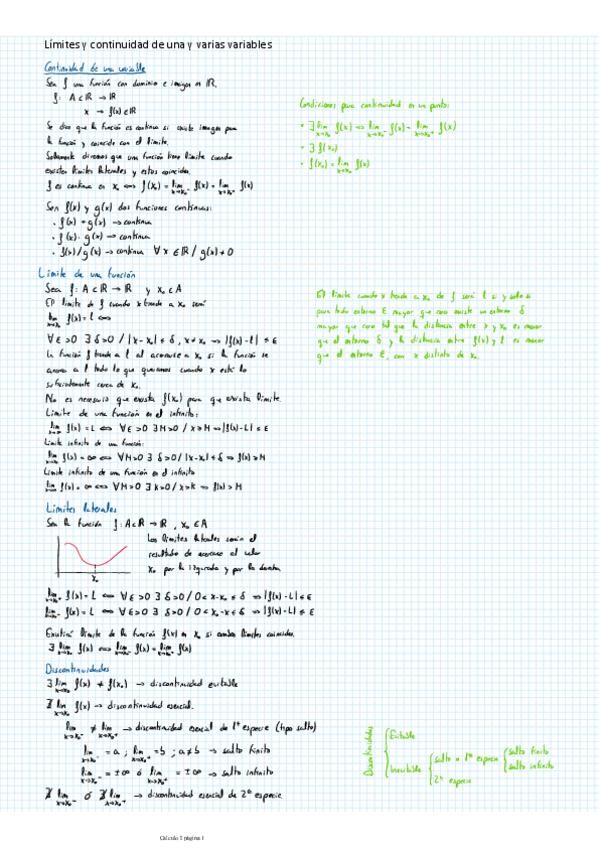 Límites y continuidad de una y varias variables
Continuidad de una variable
Sea f una función con dominio e imagen en ℝ.
f: A⊂ℝ → ℝ
x → f(x)∈ℝ
Se dice que la función es continua si existe imagen para
la función y coincide con el límite.
Solamente diremos que una función tiene límite cuando
existen límites laterales y estos coinciden.
f es continua en x₀ ⟺ f(x₀) = lim x→x₀⁻ f(x) = lim x→x₀⁺ f(x)
Sean f(x) y g(x) dos funciones continuas:
· f(x) + g(x) → continua
· f(x) · g(x) → continua
· f(x)/g(x) → continua ∀x∈ℝ / g(x)≠0
Condiciones para continuidad en un punto:
• ∃ lim x→x₀ f(x) ⟺ lim x→x₀⁻ f(x) = lim x→x₀⁺ f(x)
• ∃ f(x₀)
• f(x₀) = lim x→x₀ f(x)
Límite de una función
Sea f: A⊂ℝ → ℝ y x₀∈A
El límite de f cuando x tiende a x₀ será
lim x→x₀ f(x) = l ⟺
∀ε>0 ∃δ>0 / |x-x₀| ≤ δ, x≠x₀ ⟹ |f(x)-l| ≤ ε
La función f tiende a l al acercarse a x₀ si la función se
acerca a l todo lo que queramos cuando x está lo
suficientemente cerca de x₀.
No es necesario que exista f(x₀) para que exista límite.
Límite de una función en el infinito:
lim x→∞ f(x) = L ⟺ ∀ε>0 ∃M>0 / x≥M ⟹ |f(x)-L| ≤ ε
Límite infinito de una función:
lim x→x₀ f(x) = ∞ ⟺ ∀M>0 ∃δ>0 / |x-x₀| ≤ δ ⟹ f(x) ≥ M
Límite infinito de una función en el infinito
lim x→∞ f(x) = ∞ ⟺ ∀M>0 ∃k>0 / x>k ⟹ f(x) > M
El límite cuando x tiende a x₀ de f será l si y sólo si
para todo entorno ε mayor que cero existe un entorno δ
mayor que cero tal que la distancia entre x y x₀ es menor
que el entorno δ y la distancia entre f(x) y l es menor
que el entorno ε, con x distinto de x₀.
Límites laterales
Sea la función f: A⊂ℝ → ℝ, x₀∈A
Los límites laterales serán el
resultado de acercarse al valor
x₀ por la izquierda y por la derecha.
x₀
lim x→x₀⁺ f(x) = L ⟺ ∀ε>0 ∃δ>0 / 0<x-x₀≤δ ⟹ |f(x)-L| ≤ ε
lim x→x₀⁻ f(x) = L ⟺ ∀ε>0 ∃δ>0 / 0<x₀-x≤δ ⟹ |f(x)-L| ≤ ε
Existirá límite de la función f(x) en x₀ si ambos límites coinciden.
∃ lim x→x₀ f(x) ⟺ lim x→x₀⁻ f(x) = lim x→x₀⁺ f(x)
Discontinuidades
∃ lim x→x₀ f(x) ≠ f(x₀) → discontinuidad evitable
∄ lim x→x₀ f(x) → discontinuidad esencial.
lim x→x₀⁻ ≠ lim x→x₀⁺ → discontinuidad esencial de 1ª especie (tipo salto)
lim x→x₀⁻ = a ; lim x→x₀⁺ = b ; a≠b → salto finito
lim x→x₀⁻ = ±∞ ó lim x→x₀⁺ = ±∞ → salto infinito
∄ lim x→x₀⁻ ó ∄ lim x→x₀⁺ → discontinuidad esencial de 2ª especie
Discontinuidades
Evitable
Inevitable
salto o 1ª especie
salto finito
salto infinito
2ª especie
Cálculo I página 1